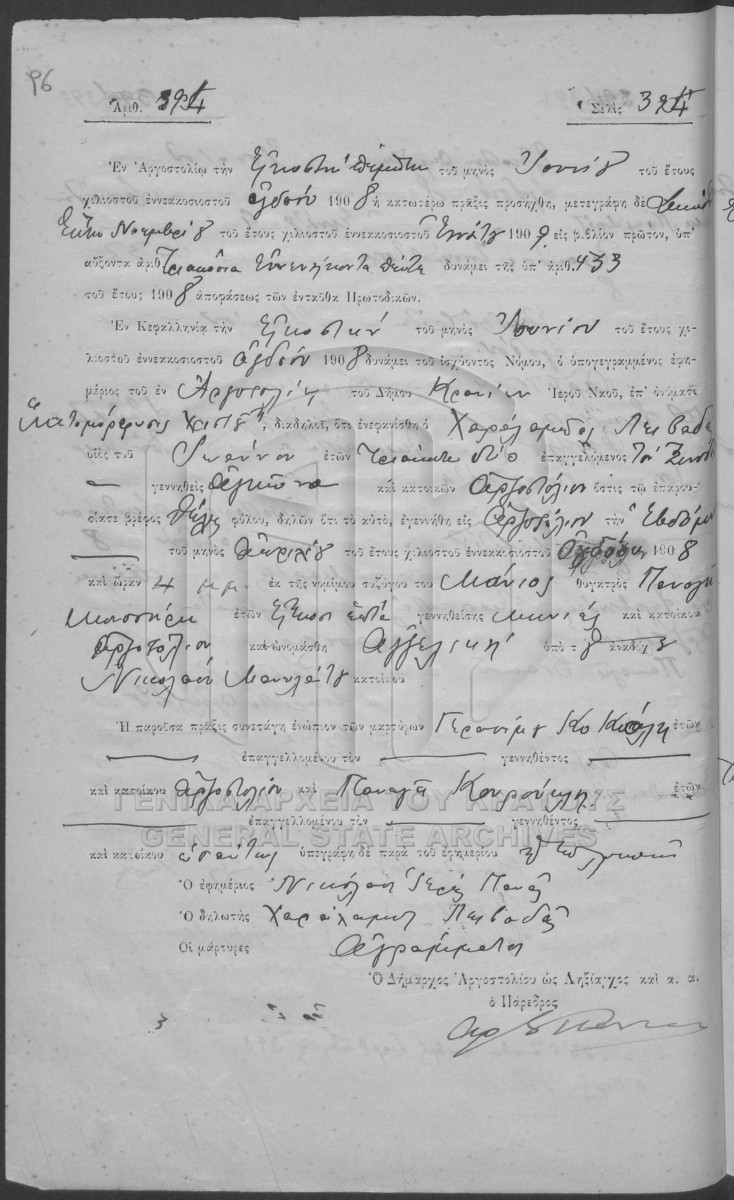 96
Ἀριθ. 394
Σελὶς 394
Ἐν Ἀργοστολίῳ τὴν Εἰκοστὴν πέμπτην τοῦ μηνὸς Ἰουνίου τοῦ ἔτους
χιλιοστοῦ ἐννεακοσιοστοῦ ὀγδόου 1908 ἡ κατωτέρω πρᾶξις προσήχθη, μετεγράφη δὲ
Νοεμβρίου τοῦ ἔτους χιλιοστοῦ ἐννεακοσιοστοῦ Ἐννάτου 1909 εἰς βιβλίον πρῶτον, ὑπ'
αὔξοντα ἀριθ. Τριακόσια Ἐννενήκοντα πέντε δυνάμει τῆς ὑπ' ἀριθ. 433
τοῦ ἔτους 1908 ἀποφάσεως τῶν ἐνταῦθα Πρωτοδικῶν.
Ἐν Κεφαλληνίᾳ τὴν Εἰκοστὴν τοῦ μηνὸς Ἰουνίου τοῦ ἔτους χι-
λιοστοῦ ἐννεακοσιοστοῦ ὀγδόου 1908 δυνάμει τοῦ ἰσχύοντος Νόμου, ὁ ὑπογεγραμμένος ἐφη-
μέριος τοῦ ἐν Ἀργοστολίῳ τοῦ Δήμου Κρανίων Ἱεροῦ Ναοῦ, ἐπ' ὀνόματι
διαδηλοῖ, ὅτι ἐνεφανίσθη ὁ Χαράλαμπος Λειβαδᾶ
υἱὸς τοῦ Ἰωάννου ἐτῶν τριάκοντα δύο ἐπαγγελλόμενος τὸν
γεννηθεὶς καὶ κατοικῶν Ἀργοστόλιον ὅστις τῷ ἐπαρου-
σίασε βρέφος θήλυ φύλου, δηλῶν ὅτι τὸ αὐτὸ, ἐγεννήθη εἰς Ἀργοστόλιον τὴν Ἑβδόμην
τοῦ μηνὸς Ἀπριλίου τοῦ ἔτους χιλιοστοῦ ἐννεακοσιοστοῦ Ὀγδόου 1908
καὶ ὥραν 4 μ.μ. ἐκ τῆς νομίμου συζύγου του θυγατρὸς Παναγῆ
ἐτῶν εἴκοσι ἑπτὰ γεννηθείσης καὶ κατοίκου
Ἀργοστόλιον καὶ ὠνομάσθη Ἀγγελικὴ ὑπὸ τοῦ ἀναδόχου
Νικολάου κατοίκου
Ἡ παροῦσα πρᾶξις συνετάγη ἐνώπιον τῶν μαρτύρων Γερασίμου ἐτῶν
ἐπαγγελλομένου τὸν γεννηθέντος
καὶ κατοίκου Ἀργοστόλιον καὶ Παναγῆ ἐτῶν
ΓΕΝΙΚΑ ΑΡΧΕΙΑ ΤΟΥ ΚΡΑΤΟΥΣ
ἐπαγγελλομένου τὸν γεννηθέντος
GENERAL STATE ARCHIVES
καὶ κατοίκου ὡσαύτως ὑπεγράφη δὲ παρὰ τοῦ ἐφημερίου
Ὁ ἐφημέριος Νικόλαος Ἱερεὺς
Ὁ δηλωτὴς Χαράλαμπος Λειβαδᾶς
Οἱ μάρτυρες Ἀγράμματοι
Ὁ Δήμαρχος Ἀργοστολίου ὡς Ληξίαρχος καὶ α. α.
ὁ Πάρεδρος